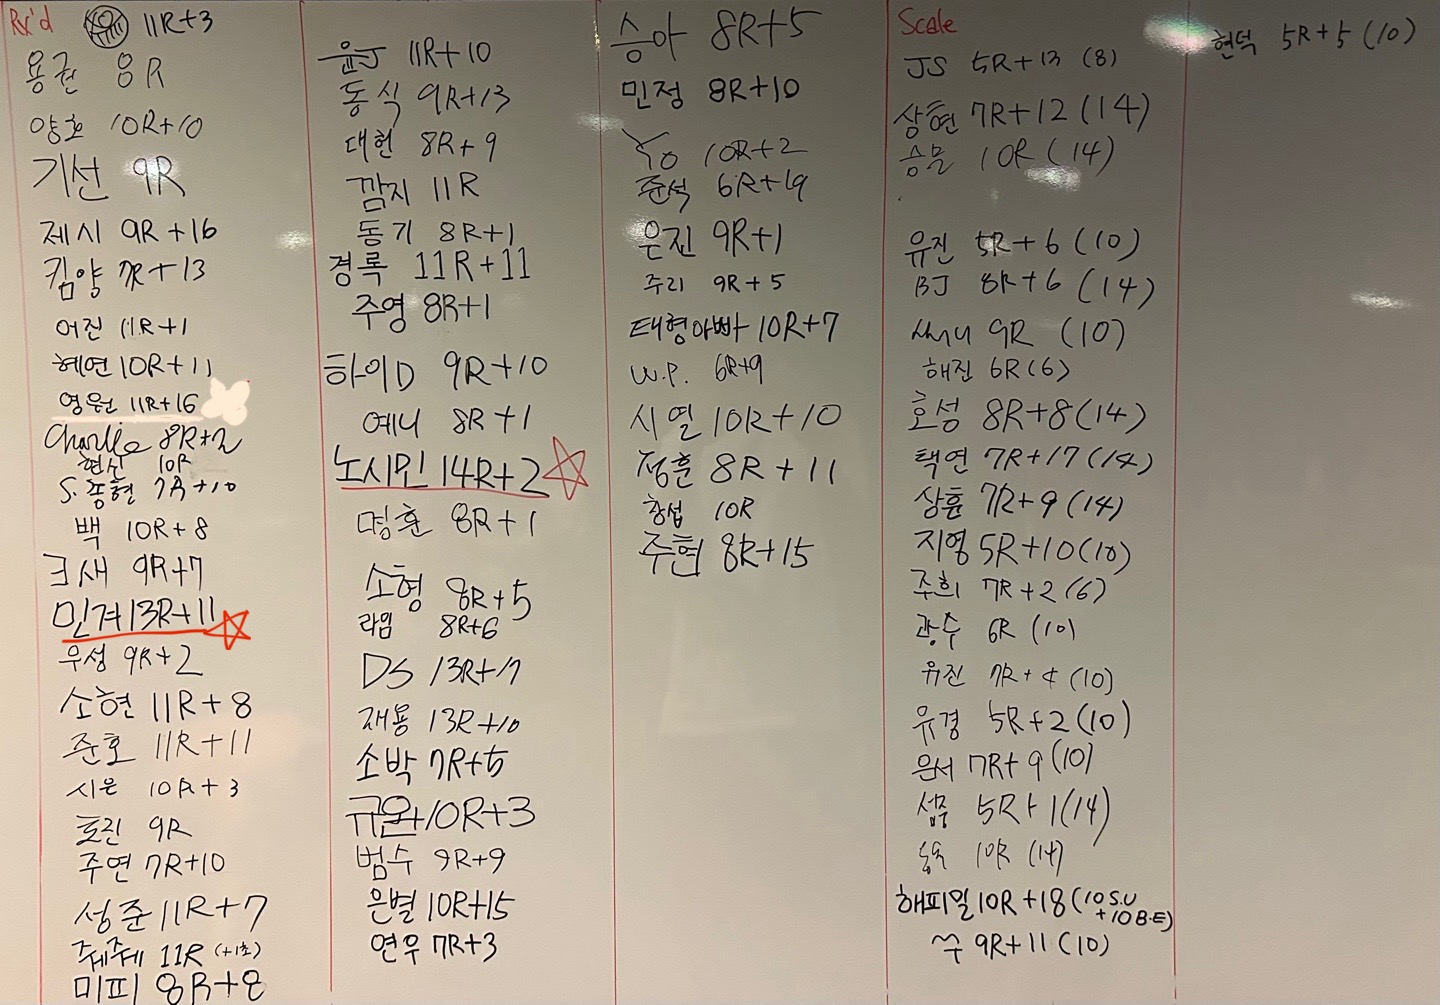 Rx'd 11R+3
용권 8R
양호 10R+10
기선 9R
제시 9R+16
킴양 7R+13
어진 11R+1
혜연 10R+11
영원 11R+16
Charlie 8R+2
현신 10R
S.종현 7R+10
백 10R+8
크새 9R+7
민겨 13R+11
우성 9R+2
소현 11R+8
준호 11R+11
시은 10R+3
효진 9R
주연 7R+10
성준 11R+7
줴줴 11R (+1초)
미피 8R+8
윤J 11R+10
동식 9R+13
대헌 8R+9
깜지 11R
동기 8R+1
경록 11R+11
주영 8R+1
하이D 9R+10
예니 8R+1
노시민 14R+2
명훈 8R+1
소형 8R+5
라임 8R+6
DS 13R+17
재용 13R+10
소박 7R+5
규온 10R+3
범수 9R+9
은별 10R+15
연우 7R+3
승아 8R+5
민정 8R+10
Yo 10R+2
준석 6R+19
은진 9R+1
주리 9R+5
태형아빠 10R+7
W.P. 6R+9
시열 10R+10
정훈 8R+11
창섭 10R
주현 8R+15
Scale
JS 5R+13 (8)
상현 7R+12 (14)
승문 10R (14)
유진 5R+6 (10)
BJ 8R+6 (14)
써니 9R (10)
해진 6R (6)
호성 8R+8 (14)
택연 7R+17 (14)
상훈 7R+9 (14)
지영 5R+10 (10)
주희 7R+2 (6)
광수 6R (10)
유진 7R+4 (10)
유경 5R+2 (10)
은서 7R+9 (10)
섭중 5R+1 (14)
10R (14)
해피밀 10R+18 (10 S.U
+10 B.E)
9R+11 (10)
현덕 5R+5 (10)